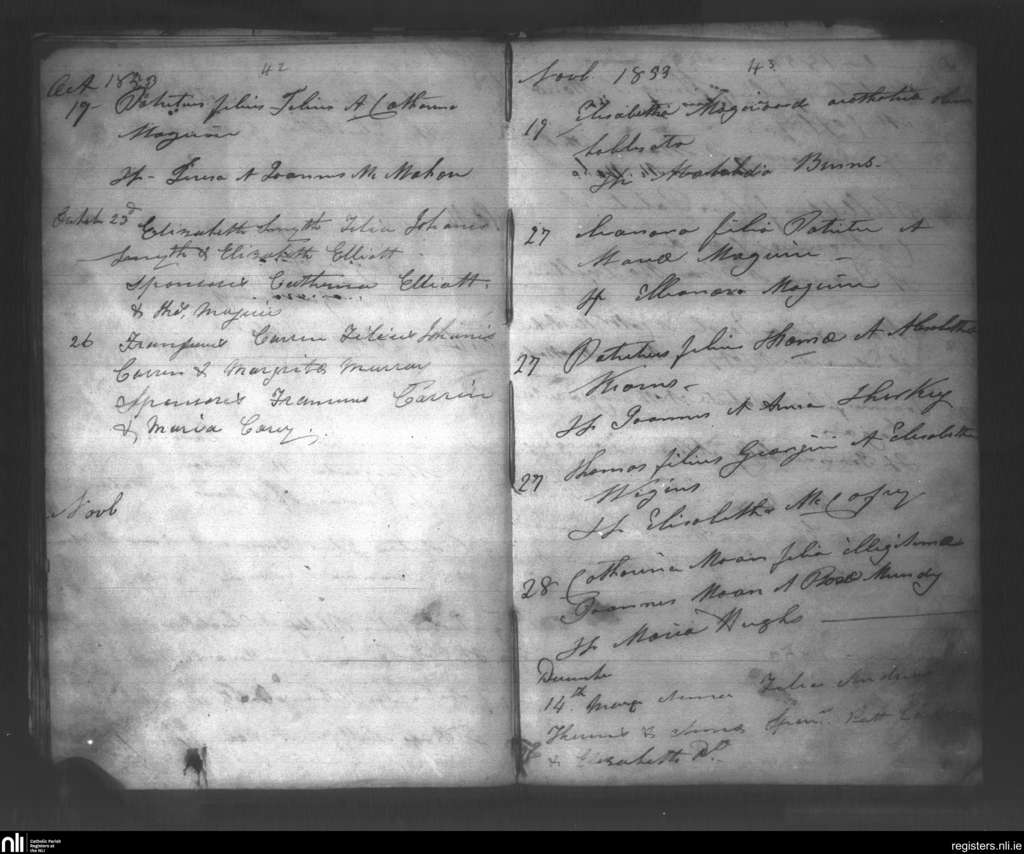 42
Oct 1833
19 Patritius filius Felius A Catherina
Maguire
Sp - Teresa A Joannes Mc Mahon
Octob 23d Elizabeth Smyth Filia Johanis
Smyth & Elizabeth Elliott
Sponsores Catherina Elliott
& Thos. Maguire
26 Carrin Filius Johanis
Carrin & Margrita Murray
Sponsores Francius Carrin
& Maria Corey.
Novb
Novb 1833 43
19 Elisabetha
Sp Burns
27 Eleanora filia Patritii A
Mariæ Maguire
Sp Elleanora Maguire
27 Patritius filius Thomæ A
Kearns
Sp Joannes A Anna Sharkey
27 Thomas filius Georgii A Elisabetha
Wigins
Sp Elisabetha McCafry
28 Catharina Moan filia illegitimæ
Joannes Moan A Rosæ Mundy
Sp Maria Hughs
Decembr
14th Mary Anna Filia Andrew
& Anna Spons. Patt
& Elizabeth Do.
nli
Catholic Parish
Registers at
the NLI
registers.nli.ie